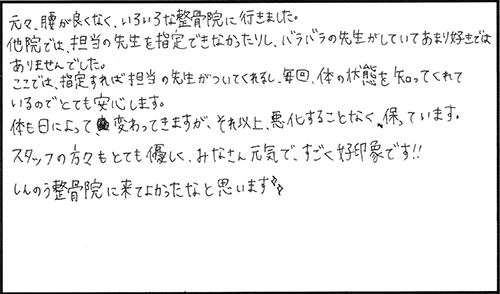 元々、腰が良くなく、いろいろな整骨院に行きました。
他院では、担当の先生を指定できなかったりし、バラバラの先生がしていてあまり好きでは
ありませんでした。
ここでは、指定すれば担当の先生がついてくれるし、毎回、体の状態を知ってくれて
いるのでとても安心します。
体も日によって変わってきますが、それ以上、悪化することなく、保っています。
スタッフの方々もとても優しく、みなさん元気で、すごく好印象です!!
しんのう整骨院に来てよかったなと思います